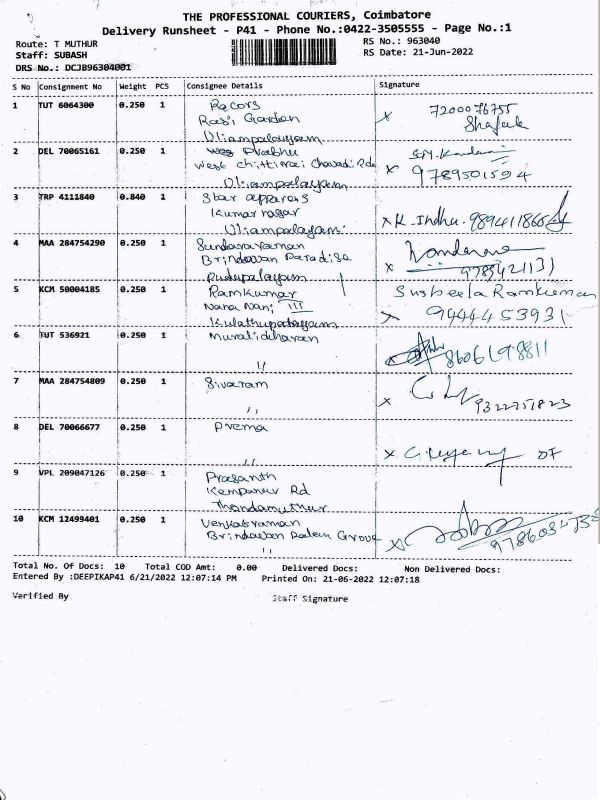 THE PROFESSIONAL COURIERS, Coimbatore
Delivery Runsheet - P41 - Phone No.:0422-3505555 - Page No.:1
Route: T MUTHUR
RS No.: 963040
Staff: SUBASH
RS Date: 21-Jun-2022
DRS No.: DCJB96304001
S No Consignment No Weight PCS Consignee Details Signature
1 TUT 6064300 0.250 1 Racors 7200076755
Rasi Garden
Uliampalayam
2 DEL 70065161 0.250 1 Prabhu
West Chittirai Chavadi Rd
Uliampalayam 9789501594
3 TRP 4111840 0.840 1 Star apparels
Kumar nagar
Uliampalayam. K. Indhu. 9894118665
4 MAA 284754290 0.250 1 Sundararaman
Brindavan Paradise
Pudupalayam 9785421131
5 KCM 50004185 0.250 1 Ramkumar Susheela Ramkumar
Nana Nani III
Kulathupalayam 9444453931
6 TUT 536921 0.250 1 Muralidharan
"
7 MAA 284754809 0.250 1 Sivaram
" 9322751823
8 DEL 70066677 0.250 1 Prema
"
9 VPL 209047126 0.250 1 Prasanth
Kempanur Rd
Thondamuthur
10 KCM 12499401 0.250 1 Venkatraman
Brindavan Palm Grove
"
Total No. Of Docs: 10 Total COD Amt: 0.00 Delivered Docs: Non Delivered Docs:
Entered By :DEEPIKAP41 6/21/2022 12:07:14 PM Printed On: 21-06-2022 12:07:18
Verified By Staff Signature